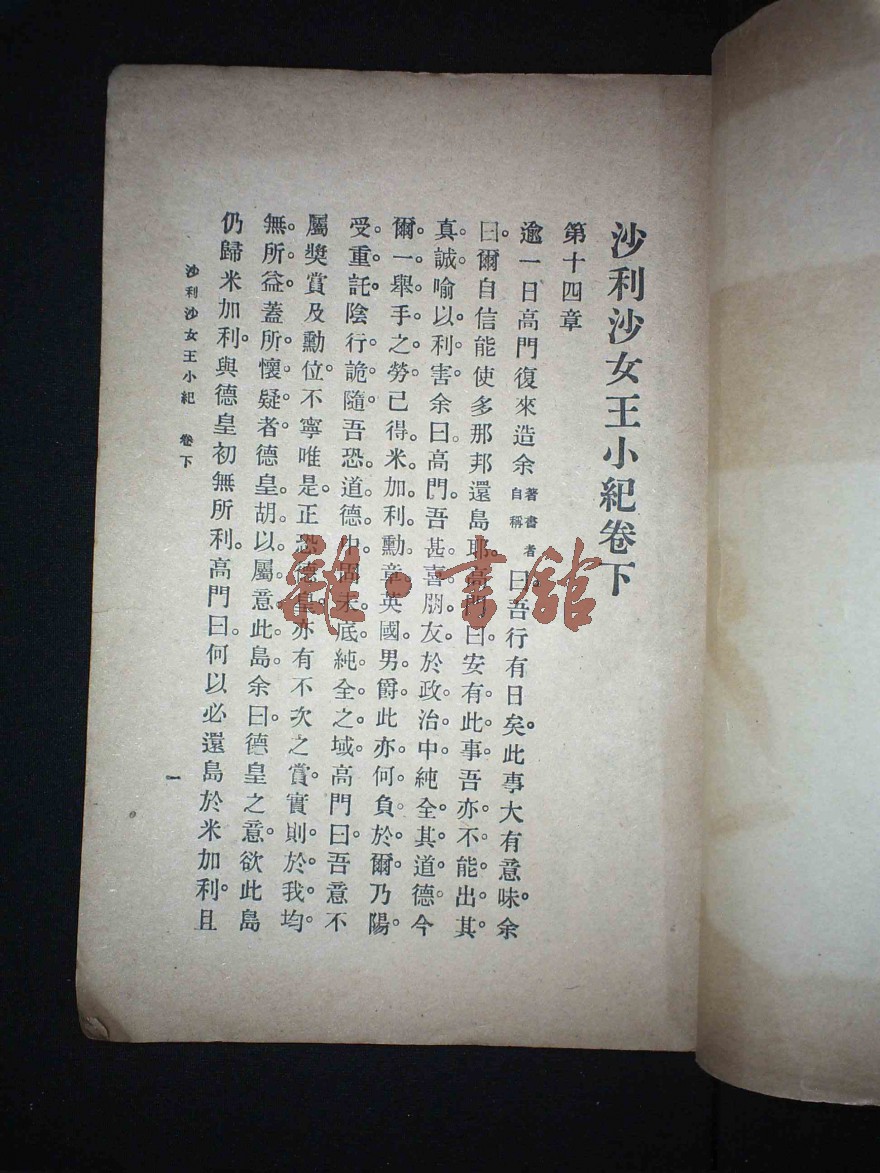 沙利沙女王小紀卷下
第十四章
逾一日高門復來造余著書者自稱曰。吾行有日矣。此事大有意味。余
曰。爾自信能使多那邦還島耶。高門曰。安有此事。吾亦不能出其
真誠。喻以利害。余曰。高門。吾甚喜朋友於政治中。純全其道德。今
爾一舉手之勞。已得米加利勳章。英國男爵。此亦何負於爾。乃陽
受重託。陰行詭隨。吾恐道德中。固未底純全之域。高門曰。吾意不
屬獎賞及勳位。不寧唯是。正恐德皇亦有不次之賞。實則於我均
無所益。蓋所懷疑者。德皇胡以屬意此島。余曰。德皇之意。欲此島
仍歸米加利。與德皇初無所利。高門曰。何以必還島於米加利。且
沙利沙女王小紀 卷下
一
雜·書館